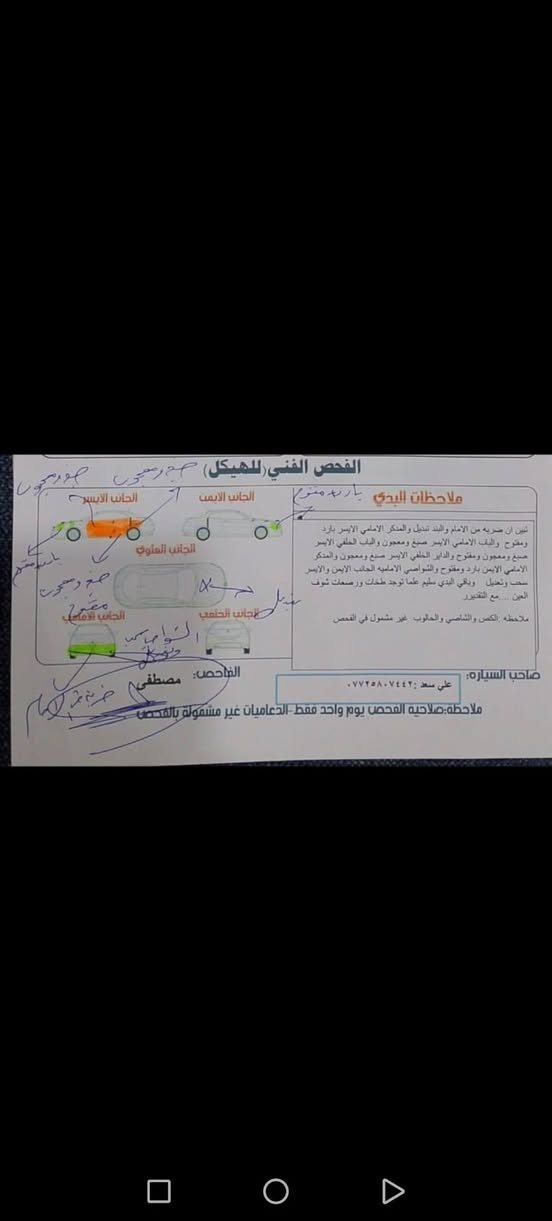 الفحص الفني (للهيكل)
ملاحظات البدي
تبين ان ضربه من الامام والبند تبديل والمدكر الامامي الايسر بارد
ومفتوح والباب الامامي الايسر صبغ ومعجون والباب الخلفي الايسر
صبغ ومعجون ومفتوح والداير الخلفي الايسر صبغ ومعجون والمدكر
الامامي الايمن بارد ومفتوح والشواصي الاماميه الجانب الايمن والايسر
سحب وتعديل وباقي البدي سليم علما توجد طخات ورصعات شوف
العين ....مع التقدير
ملاحظه :الكص والشاصي والحالوب غير مشمول في الفحص
بارد مفتوح
صبغ ومعجون
صبغ ومعجون
الجانب الايمن
الجانب الايسر
بارد مفتوح
الجانب العلوي
صبغ ومعجون
مفتوح
تبديل
الجانب الخلفي
الجانب الامامي
الشواصي سحب
وتعديل
ضربة من الامام
صاحب السيارة:
علي سعد :٠٧٧٢٥٨٠٧٤٤٢
الفاحص:
مصطفى
ملاحظة:صلاحية الفحص يوم واحد فقط-الدعاميات غير مشمولة بالفحص